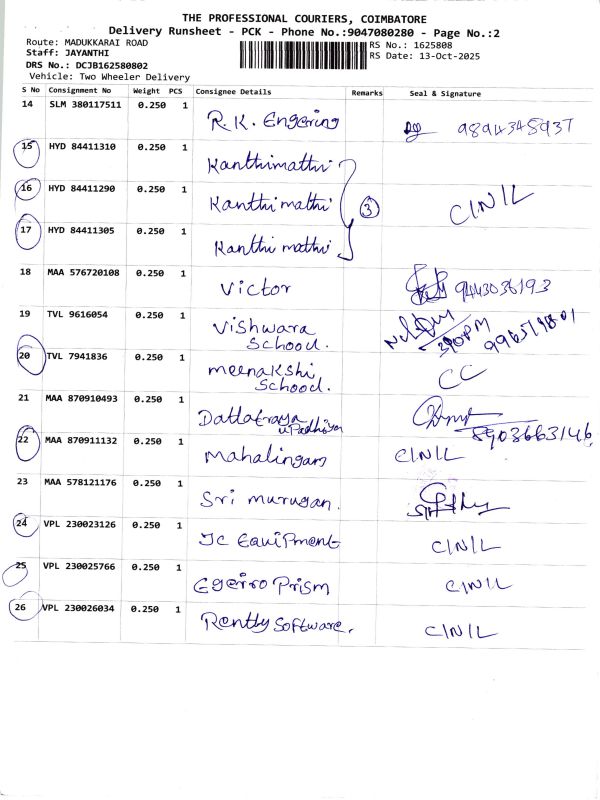 THE PROFESSIONAL COURIERS, COIMBATORE
Delivery Runsheet - PCK - Phone No.:9047080280 - Page No.:2
Route: MADUKKARAI ROAD
Staff: JAYANTHI
DRS No.: DCJB162580802
Vehicle: Two Wheeler Delivery
RS No.: 1625808
RS Date: 13-Oct-2025
S No Consignment No Weight PCS Consignee Details Remarks Seal & Signature
14 SLM 380117511 0.250 1 R.K. Engering 9894345937
15 HYD 84411310 0.250 1 Kanthimathi
16 HYD 84411290 0.250 1 Kanthimathi 3 C/N/L
17 HYD 84411305 0.250 1 Kanthi mathi
18 MAA 576720108 0.250 1 Victor 9443036193
19 TVL 9616054 0.250 1 Vishwara School.
20 TVL 7941836 0.250 1 meenakshi School. CC
21 MAA 870910493 0.250 1 Dattatraya upadhiya 8903663146
22 MAA 870911132 0.250 1 Mahalingam C/N/L
23 MAA 578121176 0.250 1 Sri murugan.
24 VPL 230023126 0.250 1 JC Equipment C/N/L
25 VPL 230025766 0.250 1 Prism C/N/L
26 VPL 230026034 0.250 1 Rently Software. C/N/L